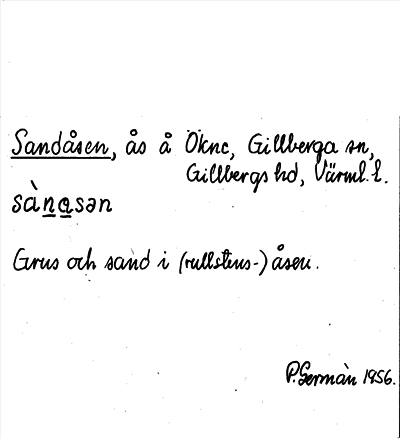 Sandåsen, ås å Ökne, Gillberga sn,
Gillbergs hd, Värml. l.
sànasən
Grus och sand i (rullstens-) åsen.
P. Germàn 1956.